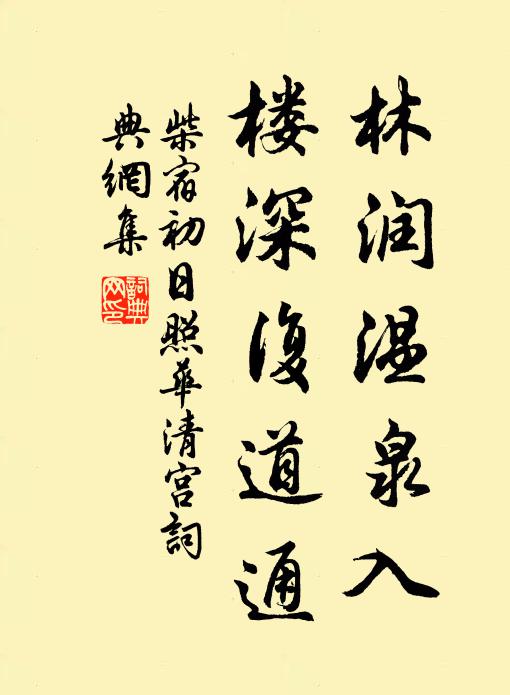 林润温泉入
楼深复道通
柴宿初日照华清宫詞
典網集
詞典
网印